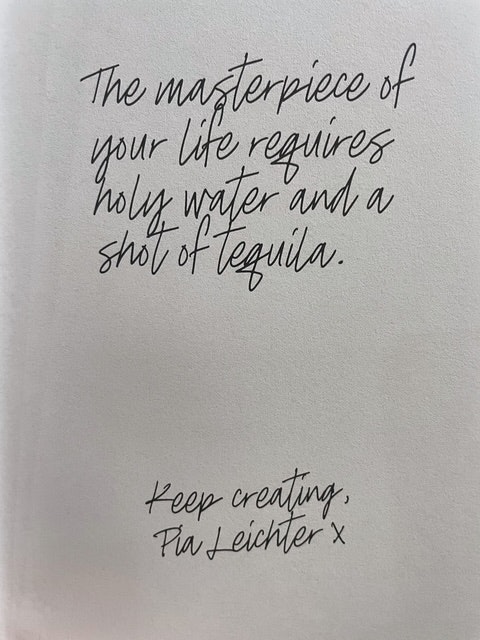 The masterpiece of
your life requires
holy water and a
shot of tequila.
Keep creating,
Pia Leichter x